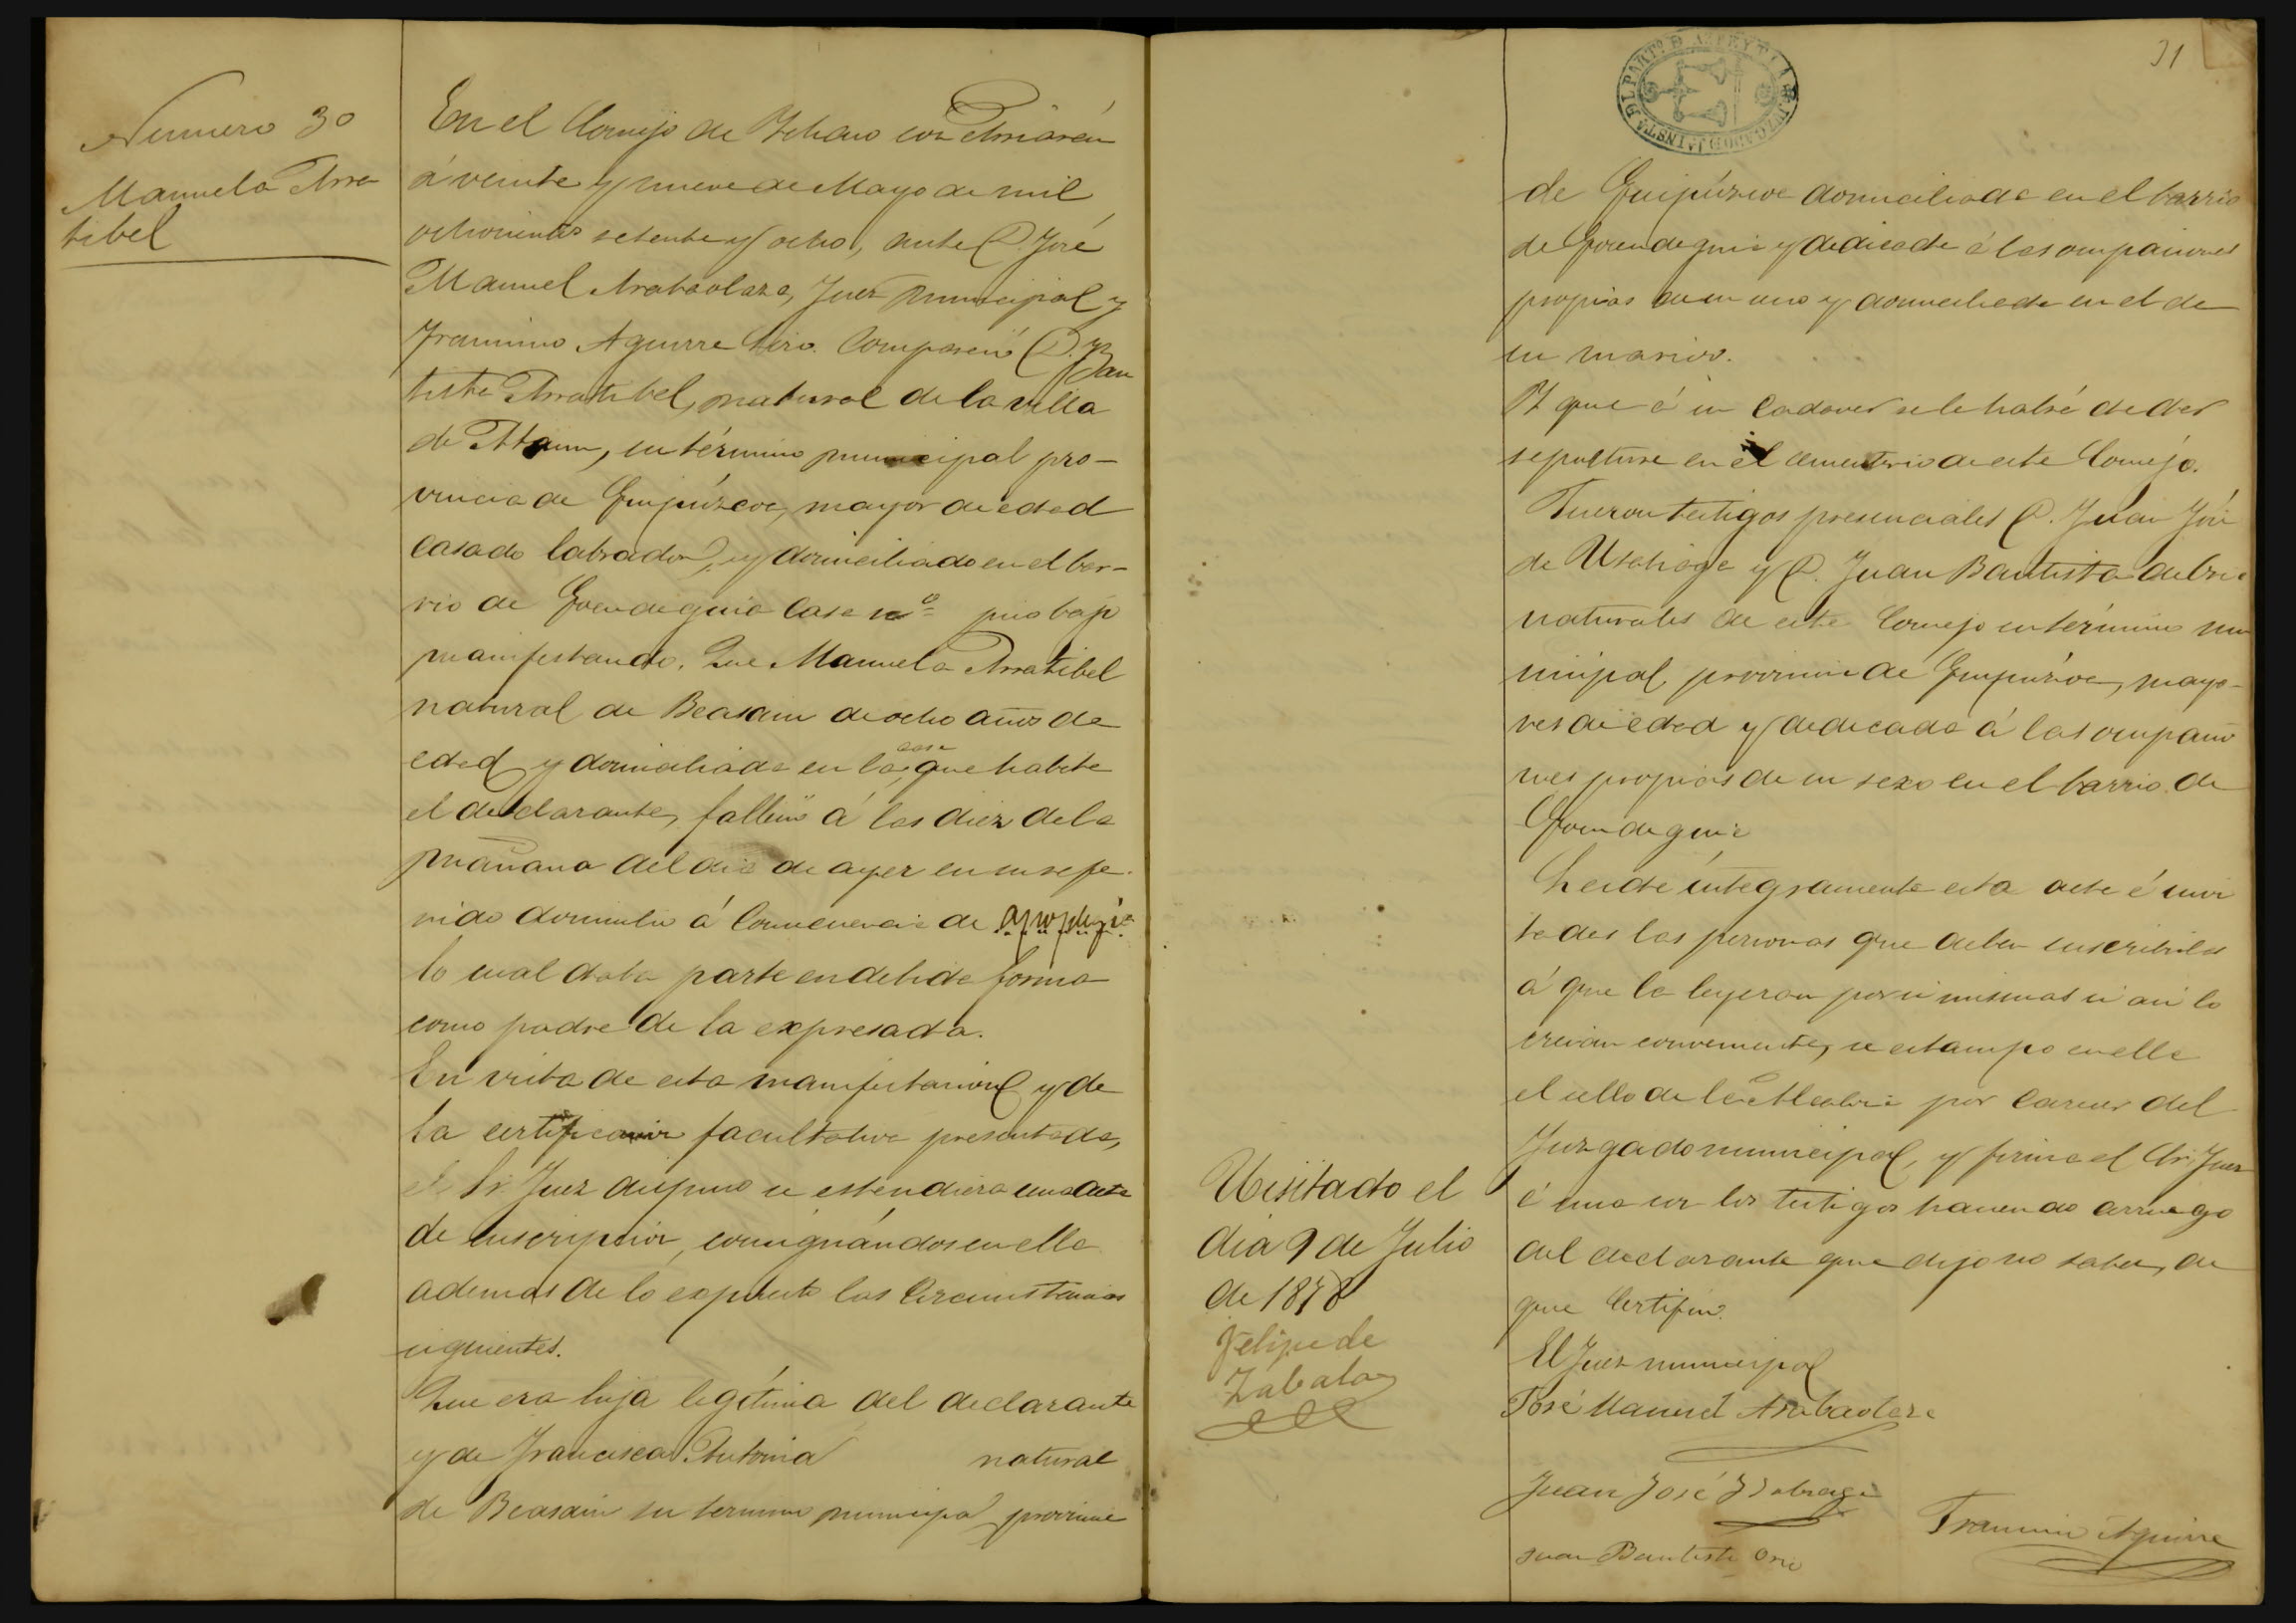 Numero 30
Manuela Arra
tibel
En el Concejo de Ichaso con Arriarán
á veinte y nueve de Mayo de mil
ochocientos setenta y ocho, ante D. José
Manuel Arabaolaza, Juez municipal y
Francisco Aguirre Srio. Compareció D. Bau
tista Arratibel, natural de la villa
de Ataun, su término municipal pro-
vincia de Guipúzcoa, mayor de edad
casado labrador, y domiciliado en el bar-
rio de Goendeguia casa nº piso bajo
manifestando. Que Manuela Arratibel
natural de Beasain de ocho años de
edad y domiciliada en la casa que habita
el declarante, falleció á las diez de la
mañana del dia de ayer en su refe-
rido domicilio á consecuencia de apoplegia
lo cual daba parte en debida forma
como padre de la expresada.
En vista de esta manifestacion y de
la certificacion facultativa presentada,
el Sr Juez dispuso se estendiera una acta
de inscripcion, consignándose en ella
ademas de lo expuesto las circunstancias
siguientes.
Que era hija legítima del declarante
y de Francisca Antonia natural
de Beasain su termino municipal provincia
31
DEL PARTº D AZPEYTIA JUZGADO D 1ª INSTª
de Guipúzcoa domiciliada en el barrio
de Goendeguia y dedicada á las ocupaciones
propias de su sexo y domiciliada en el de
su marido.
Y que á su cadaver se le habrá de dar
sepultura en el cementerio de este Concejo.
Fueron testigos presenciales D. Juan José
de Usabiaga y D. Juan Bautista de Oria
naturales de este Concejo su término mu
nicipal, provincia de Guipúzcoa, mayo-
res de edad y dedicados á las ocupacio
nes propias de su sexo en el barrio de
Goendeguia
Leida integramente esta acta é invi
tadas las personas que deben suscribirla
á que la leyeran por si mismas si asi lo
creian conveniente, se estampó en ella
el sello de la Alcaldia por carecer del
Juzgado municipal, y firma el Sr. Juez
é una con los testigos haciendo á ruego
del declarante que dijo no saber, de
que certifico.
El Juez municipal
José Manuel Arabaolaza
Juan José Usabiaga
Juan Bautista Oria
Francisco Aguirre
Visitado el
dia 9 de Julio
de 1878
Felipe de
Zabala